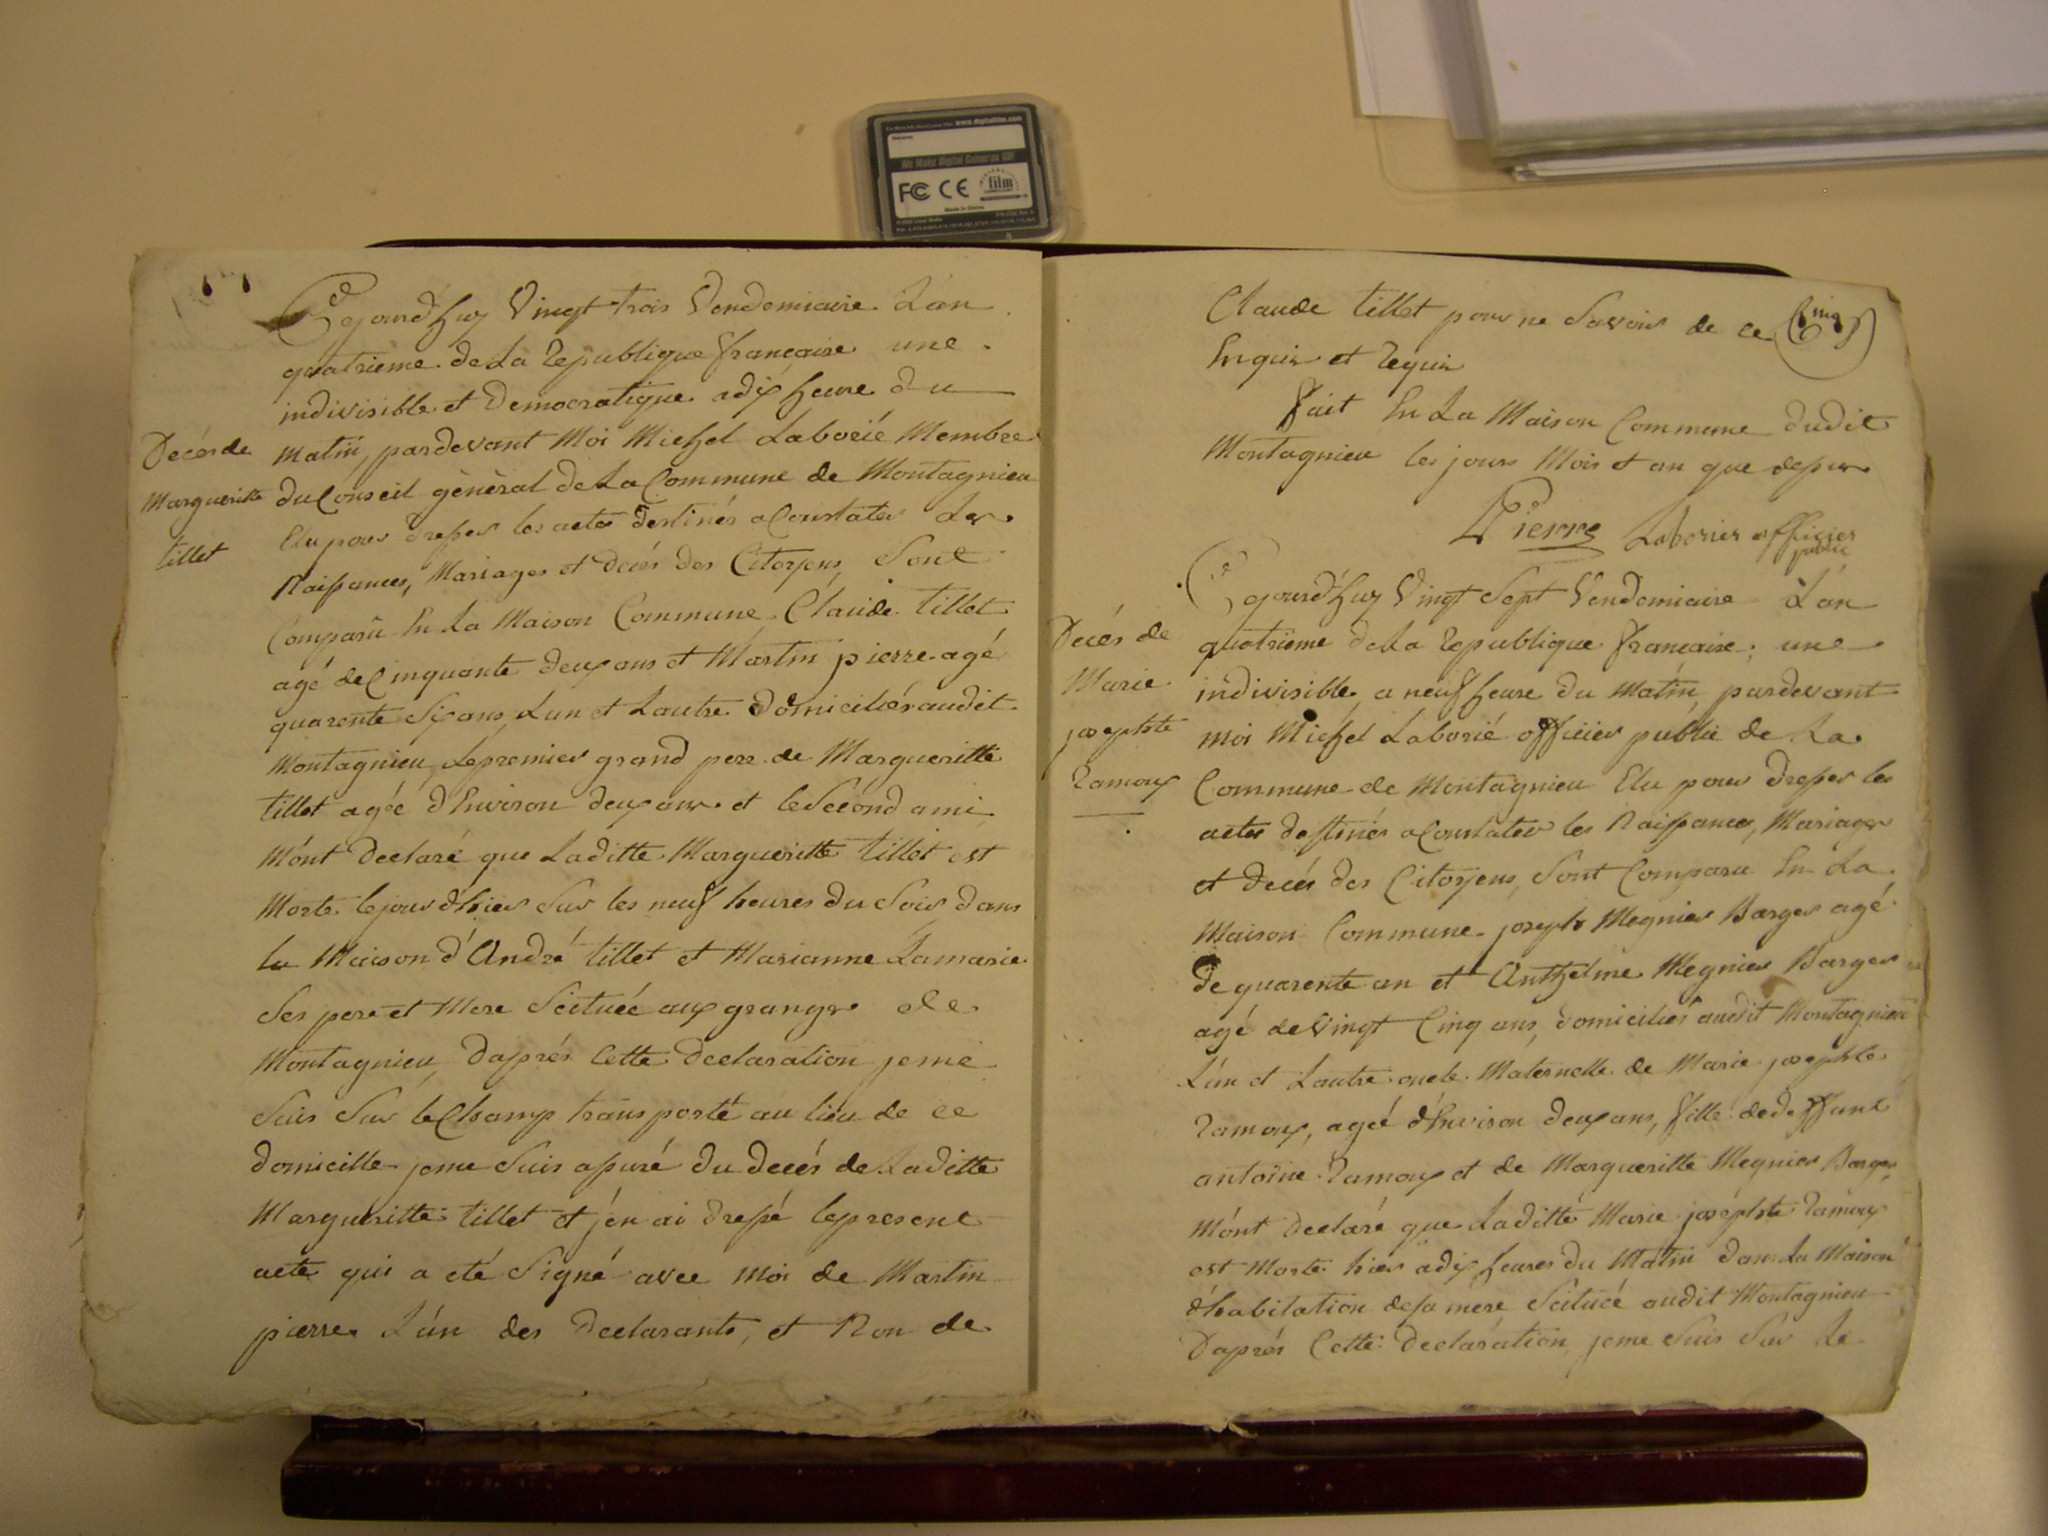 www.digitalfilm.com
We Make Digital Cameras GO!
FC CE film
Made in China
Cejourd'huy Vingt trois Vendemiaire L'an
quatrieme de La Republique française une
indivisible et Democratique adix heure du
matin, pardevant Moi Michel Laborié Membre
du Conseil général de La Commune de Montagnieu
Elu pour dresser les actes destinés a Constater Les
Naissances, Mariages et decés des Citoyens, Sont
Comparû En La Maison Commune Claude tillet
agé de Cinquante deux ans et Martin pierre agé
quarente Six ans, Lun et Lautre domiciliés audit
Montagnieu, Le premier grand pere de Margueritte
tillet agée d'Environ deux ans et le Second ami
M'ont Declaré que Laditte Margueritte tillet est
Morte le jour d'hier Sur les neuf heures du Soir dans
la Maison d'André tillet et Marianne Lamarie
Ses pere et Mere Scituée aux granges de
Montagnieu, D'aprés Cette Declaration je me
Suis Sur le Champ transporté au lieu de ce
domicille je me Suis assuré du decés de Laditte
Margueritte tillet et j'en ai dressé le present
acte qui a eté Signé avec Moi de Martin
pierre L'un des Declarants, et Non de
Decés de
Margueritte
tillet
Claude tillet pour ne Savoir de ce
Enquis et Requis
Cinq
fait En La Maison Commune dudit
Montagnieu les jours Mois et an que dessus
Pierre Laborier officier
public
Cejourd'huy Vingt Sept Vendemiaire L'an
quatrieme de La Republique française, une
indivisible, a neuf heure du Matin, pardevant
moi Michel Laborié officier public de La
Commune de Montagnieu Elu pour dresser les
actes destinés a Constater les Naissances, Mariages
et decés des Citoyens, Sont Comparu En La
Maison Commune joseph Megnier Barger agé
de quarente an et Anthelme Megnier Barger
agé de Vingt Cinq ans, domiciliés audit Montagnieu
L'un et Lautre oncle Maternelle de Marie josephte
Ramoux, agée d'Environ deux ans, fille de deffunt
antoine Ramoux et de Margueritte Megnier Barger
M'ont Declaré que Laditte Marie josephte Ramoux
est Morte hier adix heures du Matin dans La Maison
d'habitation de sa mere Scituée audit Montagnieu
D'aprés Cette Declaration, je me Suis Sur le
Decés de
Marie
josephte
Ramoux